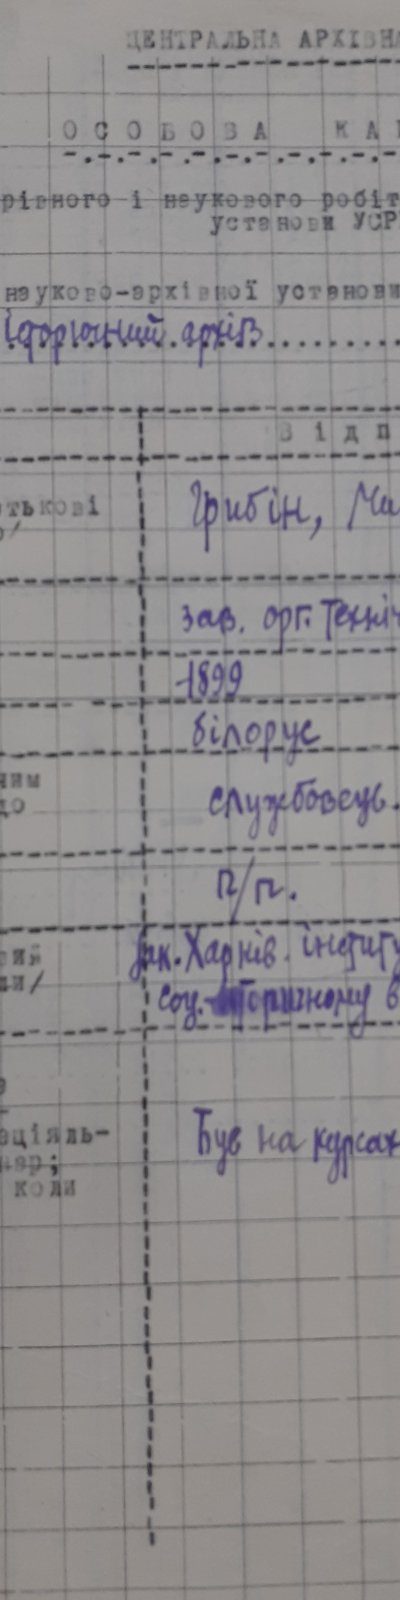 ЦЕНТРАЛЬНА АРХІВНА
ОСОБОВА КАР
рівного і наукового робіт
установи УСР
науково-архівної установи
історичний архів
Відп
тькові
Грибін, Ми
зав. орг. техніч
1899
білорус
ним
до
службовець.
п/п.
вий
Зак. Харків. інститу
ли/
соц.-історичному в
оціяль-
нар;
Був на курсах
коли